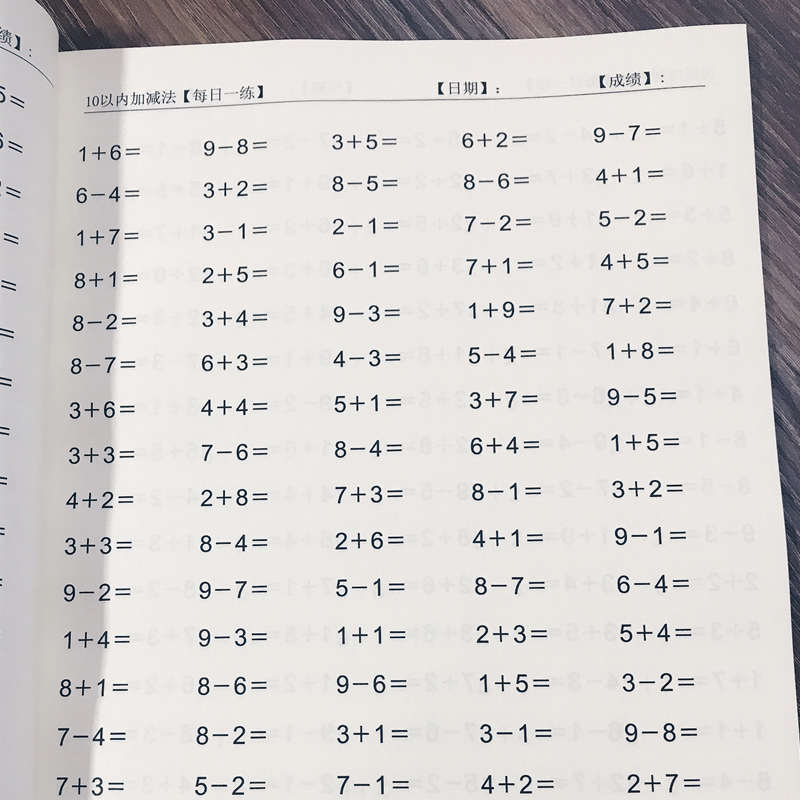 绩】:
10以内加减法【每日一练】 【日期】: 【成绩】:
5=
6=
2=
=
=
=
=
=
=
=
=
1+6= 9-8= 3+5= 6+2= 9-7=
6-4= 3+2= 8-5= 8-6= 4+1=
1+7= 3-1= 2-1= 7-2= 5-2=
8+1= 2+5= 6-1= 7+1= 4+5=
8-2= 3+4= 9-3= 1+9= 7+2=
8-7= 6+3= 4-3= 5+4= 1+8=
3+6= 4+4= 5+1= 3+7= 9-5=
3+3= 7-6= 8-4= 6+4= 1+5=
4+2= 2+8= 7+3= 8-1= 3+2=
3+3= 8-4= 2+6= 4+1= 9-1=
9-2= 9-7= 5-1= 8-7= 6-4=
1+4= 9-3= 1+1= 2+3= 5+4=
8+1= 8-6= 9-6= 1+5= 3-2=
7-4= 8-2= 3+1= 3-1= 9-8=
7+3= 5-2= 7-1= 4+2= 2+7=